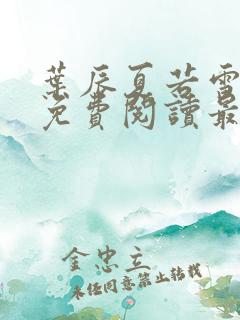 葉辰夏若雪
免費閱讀最
金忠立
未经同意禁止转载